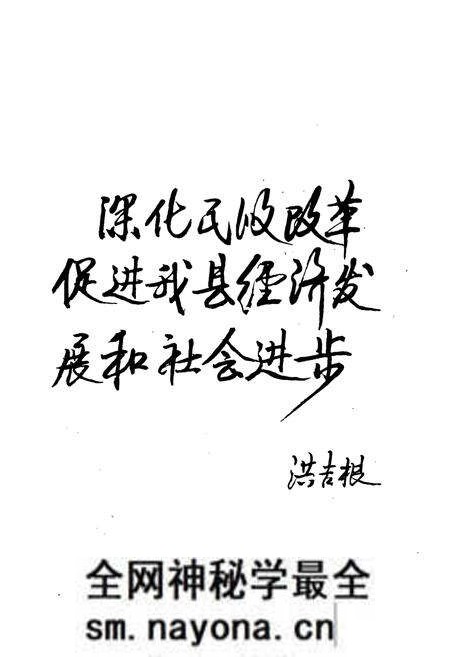 深化民政改革
促进我县经济发
展和社会进步
洪吉根
全网神秘学最全
sm.nayona.cn